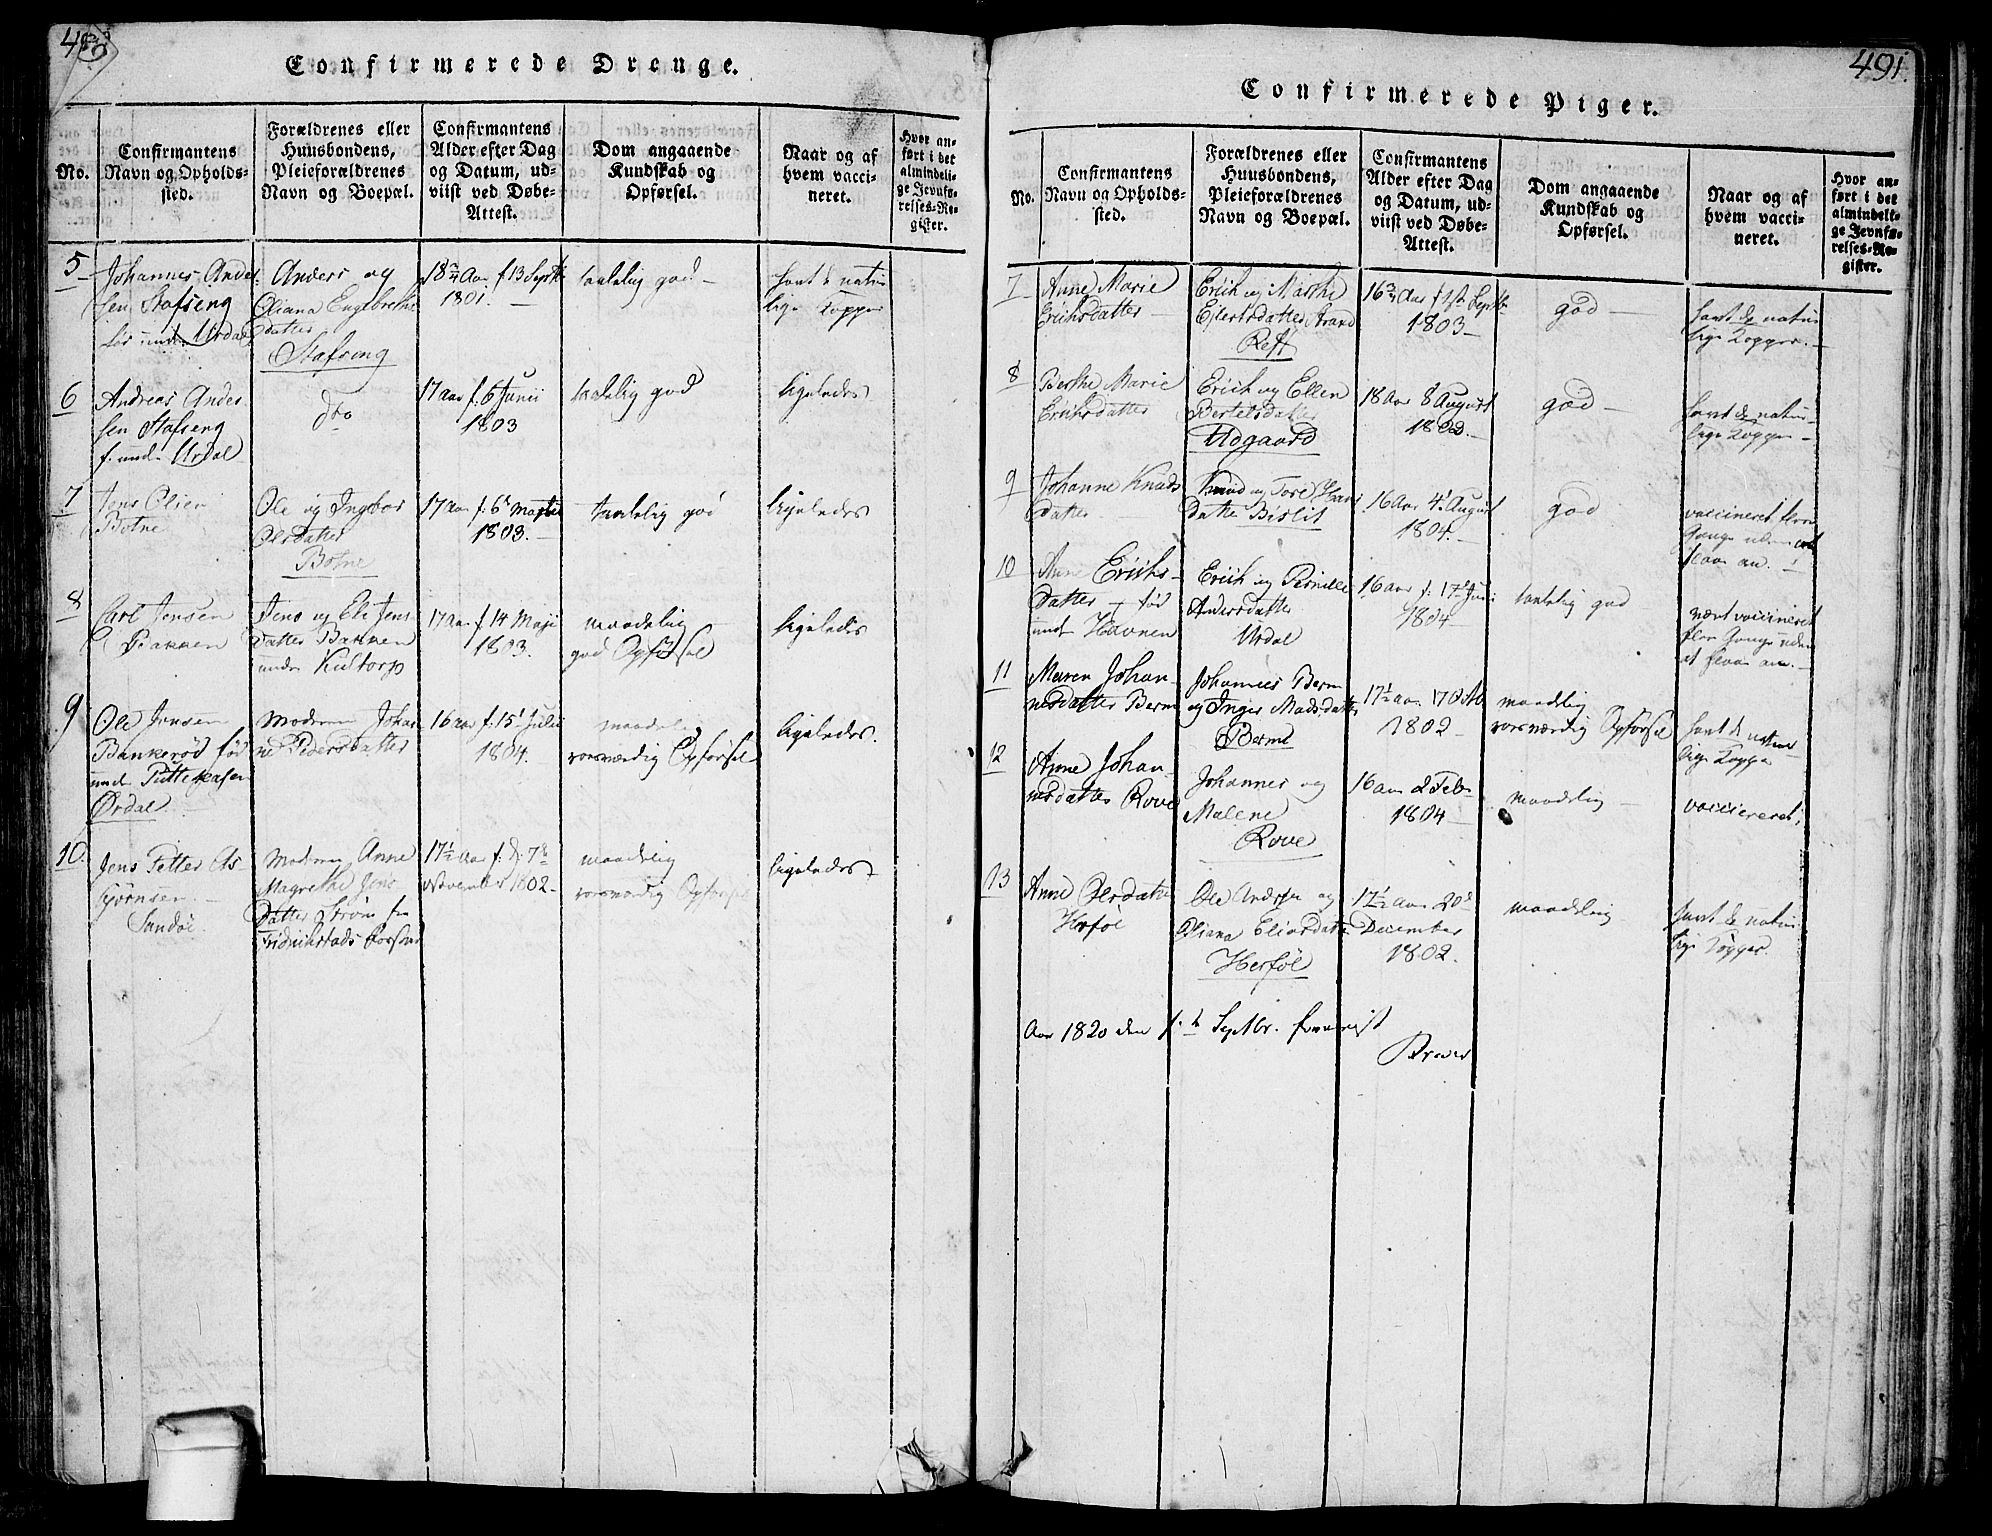 Confirmerede Drenge.
No.
Confirmantens
Navn og Opholds-
sted.
Forældrenes eller
Huusbondens,
Pleieforældrenes
Navn og Boepæl.
Confirmantens
Alder efter Dag
og Datum, ud-
viist ved Døbe-
Attest.
Dom angaaende
Kundskab og
Opførsel.
Naar og af
hvem vacci-
neret.
Hvor an-
ført i det
almindeli-
ge Jevnfø-
relses-Re-
gister.
5
Johannes Ander
sen Stafseng
Urdal
Anders og
Eliana Engebrethe
datter
Stafseng
18 3/4 Aar f 13 Septb
1801.
taalelig god-
havt de natur
lige Kopper
6
Andreas Ander
sen Stafseng
f. und. Urdal
dto
17 aar f. 6 Junii
1803
taalelig god
ligeledes
7
Jens Olsen
Botne
Ole og Ingebor
Olesdatter
Botne
17 aar f. 6
1803.
taalelig god
ligeledes
8
Carl Jensen
Bakken
Jens og Eli Jens
datter Bakken
under
17 aar f 14 Maji
1803.
maadelig
god Opførsel
ligeledes
9
Ole Jensen
Bankerød fød
und
Ørdal
Moderen Johan
ne Pedersdatter
16 aar f. 15 Julii
1804.
maadelig
roesværdig Opførsel
ligeledes.
10.
Jens Petter As-
bjørnsen
Sandøe
Moderen Anne
Magrethe Jens
datter Strøm fra
Fridrichstads
17 1/2 aar f. d. 7
November 1802-
maadelig
roesværdig Opførsel
ligeledes
491.
Confirmerede Piger.
No.
Confirmantens
Navn og Opholds-
sted.
Forældrenes eller
Huusbondens,
Pleieforældrenes
Navn og Boepæl.
Confirmantens
Alder efter Dag
og Datum, ud-
viist ved Døbe-
Attest.
Dom angaaende
Kundskab og
Opførsel.
Naar og af
hvem vacci-
neret.
Hvor an-
ført i det
almindeli-
ge Jevnfø-
relses-Re-
gister.
7
Anne Marie
Erichsdatter
Erich og Marthe
Ejlertsdatter
Røff
16 3/4 Aar f 1st Septb
1803-
god
havt de natur
lige Kopper.
8
Berthe Marie
Erichsdatter
Erich og Ellen
Bertelsdatter
Udgaard
18 aar 8 August
god
havt de natur
lige Kopper
9
Johanne Knuds
datter
Knud og Tore Hans
datter Bislit
16 aar 4 August
1804.
god
vaccineret flere
Gange uden at
slaae an.
10
Anne Erichs-
datter fød
und Havnen
Erich og Pernille
Andersdatter
Urdal
16 aar f. 17 Juni
1804
taalelig god
vært vaccineret
flere Gange uden
at slaae an.
11
Maren Johan-
nesdatter Berm
Johannes Berm
og Inger Madsdatter
Berme
17 1/2 aar
1802
maadlig
roesværdig Opførsel
havt de natur
lige Kopper
12
Anne Johan-
nesdatter Rove
Johannes og
Malene
Rove
16 aar 2 Feb
1804
maadelig
vaccineret,
13
Anne Olesdatter
Herføl
Ole Andersen og
Eliana
Herføl
17 1/2 aar 20
December
1802.
maadelig
havt de natur
lige Kopper.
Aar 1820 den Septbr.